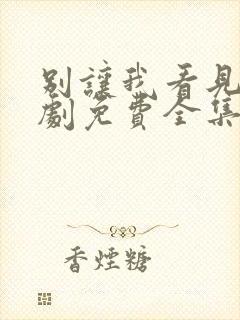 别讓我看見
劇免費全集
香煙糖